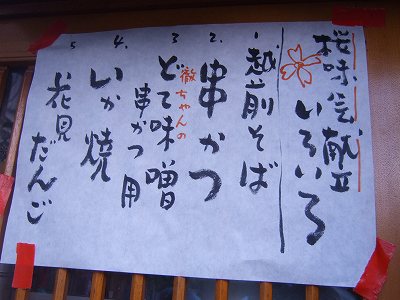 桜味会献立
いろいろ
1 越前そば
2. 串かつ
3 徹ちゃんの
どて味噌
串かつ用
4. いか焼
5 花見だんご